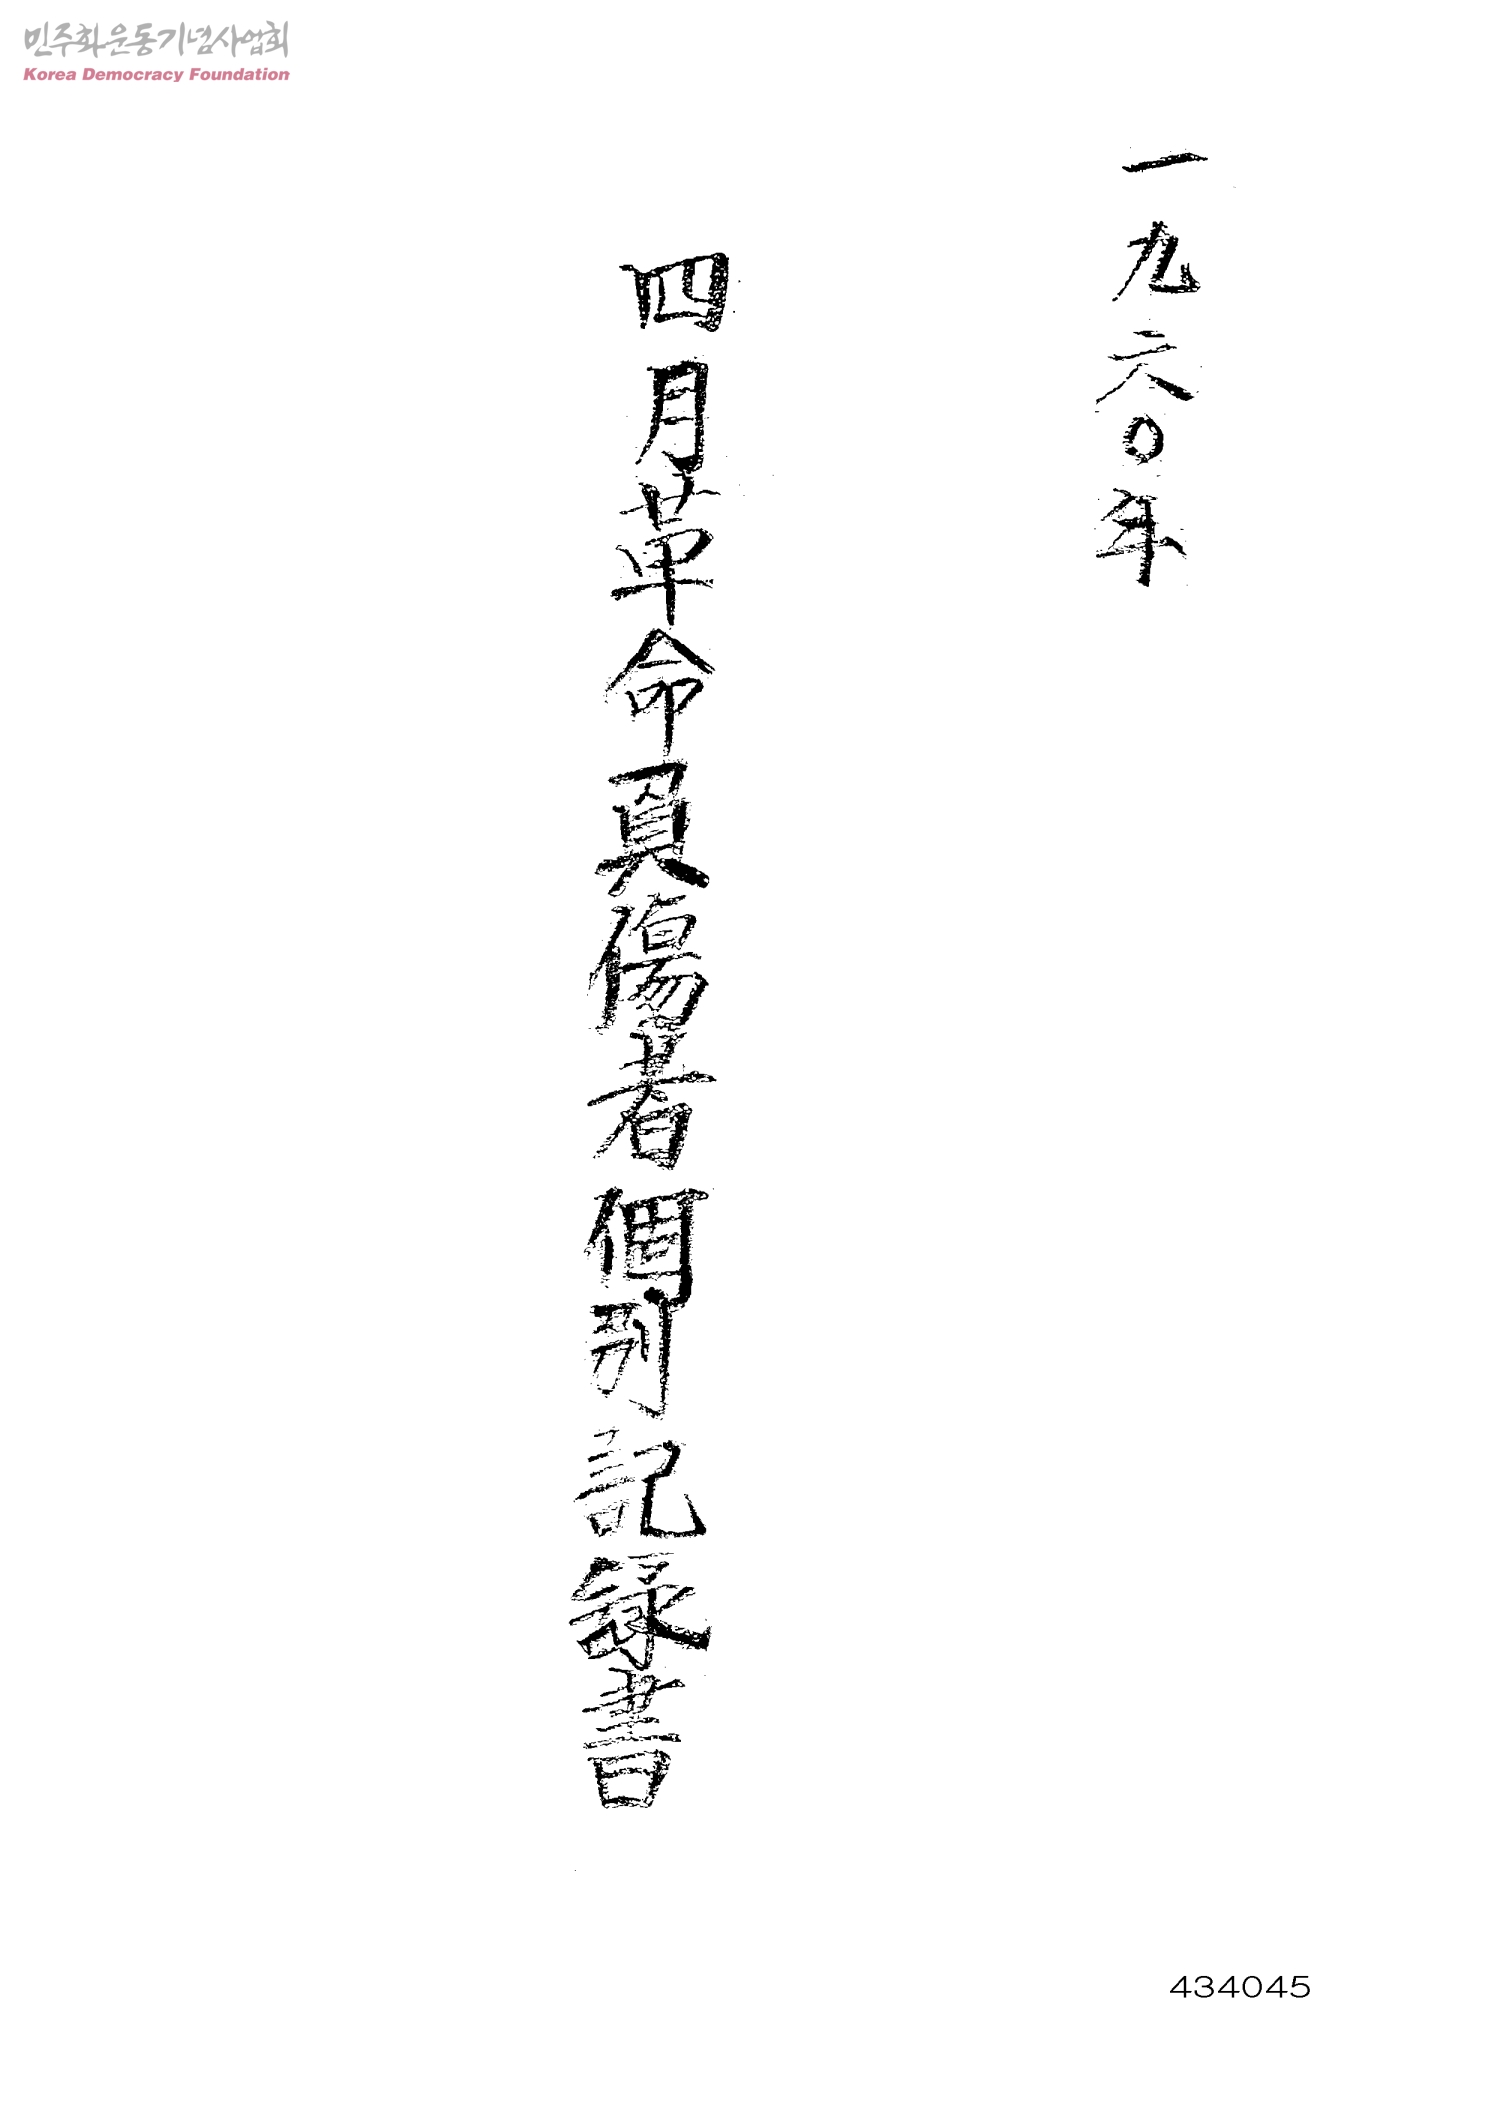 민주화운동기념사업회
Korea Democracy Foundation
一九六〇年
四月革命負傷者個別記録書
434045